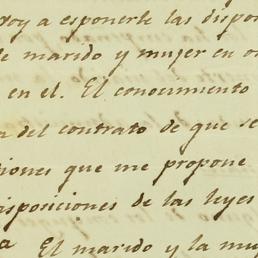 Voy a esponerle las dispo
de marido y mujer en o
en el. El conocimiento
del contrato de que se
iones que me propone
isposiciones de las leyes
El marido y la mu